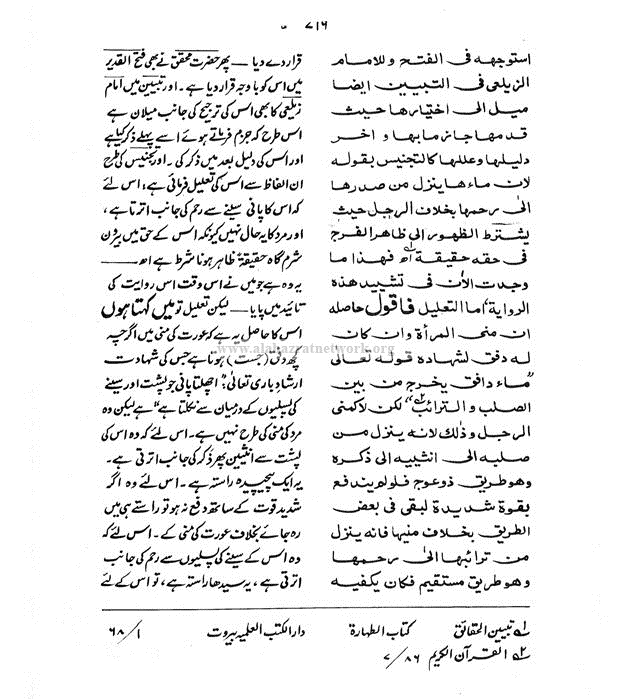 ۷۱۶
استوجهه فی الفتح وللامام
الزیلعی فی التبیین ایضا
میل الی اختیارها حیث
قدمها جازما بها و اخر
دلیلها وعللها کالتجنیس بقوله
لان ماءها ینزل من صدرها
الی رحمها بخلاف الرجل حیث
یشترط الظهور الی ظاهر الفرج
فی حقه حقیقة اھ۱ فهذا ما
وجدت الأن فی تشیید هذه
الروایة اما التعلیل فاقول حاصله
ان منی المرأة وان کان
له دفق لشهادة قوله تعالی
"ماء دافق یخرج من بین
الصلب و الترائب۲" لکن لاکمنی
الرجل و ذلك لانه ینزل من
صلبه الی انثییه الی ذکره
وهو طریق ذوعوج فلولم یندفع
بقوة شدیدة لبقی فی بعض
الطریق بخلاف منیها فانه ینزل
من ترائبها الی رحمها
وهو طریق مستقیم فکان یکفیه
قرار دے دیا — پھر حضرت محقق نے بھی فتح القدیر
میں اس کو باوجہ قرار دیا ہے۔ اور تبیین میں امام
زیلعی کا بھی اس کی ترجیح کی جانب میلان ہے
اس طرح کہ جزم فرماتے ہوئے اسے پہلے ذکر کیا ہے
اور اس کی دلیل بعد میں ذکر کی۔ اور تجنیس کی طرح
ان الفاظ سے اس کی تعلیل فرمائی ہے، اس لئے
کہ اس کا پانی سینے سے رحم کی جانب اترتا ہے،
اور مرد کا یہ حال نہیں کیونکہ اس کے حق میں بیرون
شرم گاہ حقیقۃً ظاہر ہونا شرط ہے اھ —
یہ وہ ہے جو میں نے اس وقت اس روایت کی
تائید میں پایا — لیکن تعلیل تو میں کہتا ہوں
اس کا حاصل یہ ہے کہ عورت کی منی میں اگرچہ
کچھ دفق (جست) ہوتا ہے جس کی شہادت
ارشادِ باری تعالیٰ: "اچھلتا پانی جو پشت اور سینے
کی پسلیوں کے درمیان سے نکلتا ہے" ہے لیکن وہ
مرد کی منی کی طرح نہیں ہے۔ اس لئے کہ وہ اس کی
پشت سے انثیین پھر ذکر کی جانب اترتی ہے۔
یہ ایک پیچیدہ راستہ ہے۔ اس لئے وہ اگر
شدید قوت کے ساتھ دفع نہ ہو تو راستے ہی میں
رہ جائے بخلاف عورت کی منی کے۔ اس لئے کہ
وہ اس کے سینے کی پسلیوں سے رحم کی جانب
اترتی ہے، یہ سیدھا راستہ ہے، تو اس کے لئے
www.alahazratnetwork.org
۱ تبیین الحقائق کتاب الطهارة دارالکتب العلمیہ بیروت ۱/۶۸
۲ القرآن الکریم ۸۶/۷